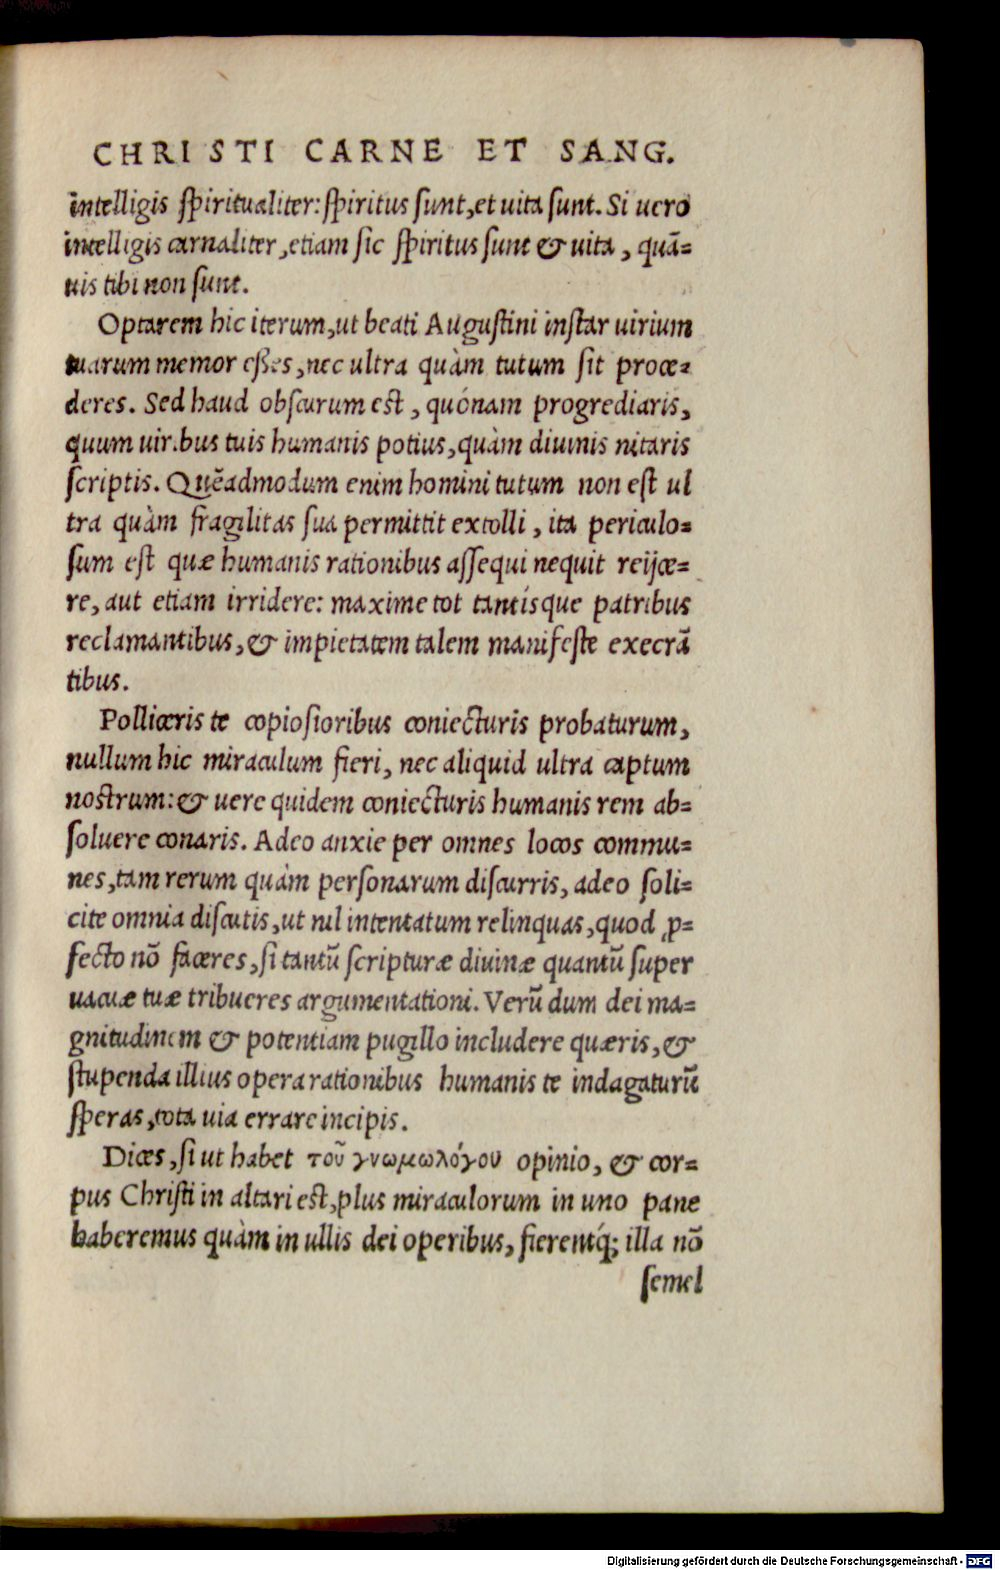 CHRISTI CARNE ET SANG.
intelligis spiritualiter: spiritus sunt, et uita sunt. Si uero
intelligis carnaliter, etiam sic spiritus sunt & uita, quã-
uis tibi non sunt.
Optarem hic iterum, ut beati Augustini instar uirium
tuarum memor eßes, nec ultra quàm tutum sit proce-
deres. Sed haud obscurum est, quónam progrediaris,
quum uiribus tuis humanis potius, quàm diuinis nitaris
scriptis. Quẽadmodum enim homini tutum non est ul
tra quàm fragilitas sua permittit extolli, ita periculo-
sum est quæ humanis rationibus assequi nequit reijce-
re, aut etiam irridere: maxime tot tantísque patribus
reclamantibus, & impietatem talem manifeste execrã
tibus.
Polliceris te copiosioribus coniecturis probaturum,
nullum hic miraculum fieri, nec aliquid ultra captum
nostrum: & uere quidem coniecturis humanis rem ab-
soluere conaris. Adeo anxie per omnes locos commu-
nes, tam rerum quàm personarum discurris, adeo soli-
cite omnia discutis, ut nil intentatum relinquas, quod ꝓ-
fecto nõ faceres, si tantũ scripturæ diuinæ quantũ super
uacuæ tuæ tribueres argumentationi. Verũ dum dei ma-
gnitudinem & potentiam pugillo includere quæris, &
stupenda illius opera rationibus humanis te indagaturũ
speras, tota uia errare incipis.
Dices, si ut habet τοῦ γνωμωλόγου opinio, & cor-
pus Christi in altari est, plus miraculorum in uno pane
haberemus quàm in ullis dei operibus, fierentq́; illa nõ
semel
Digitalisierung gefördert durch die Deutsche Forschungsgemeinschaft - DFG